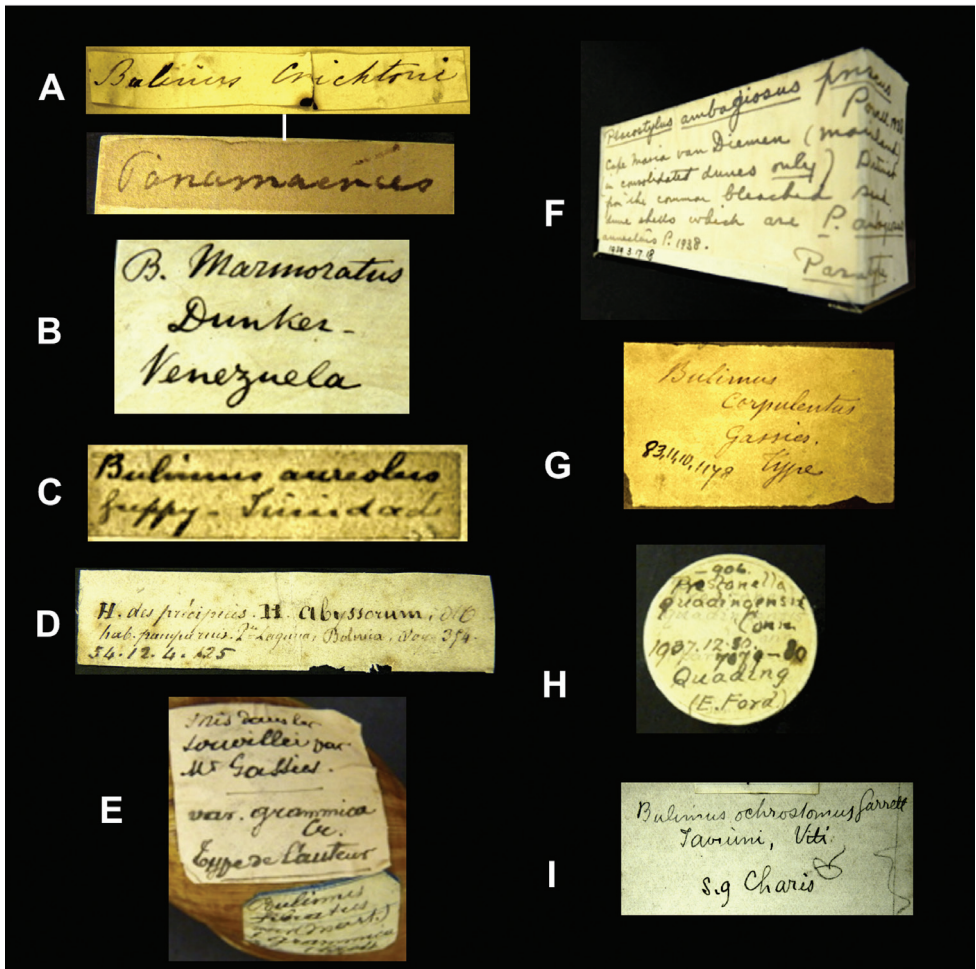 A
Bulinus Crichtoni
Panamaencies
B
B. Marmoratus
Dunker-
Venezuela
C
Bulimus aureolus
Guppy - Trinidad
D
H. des précipices. H. Abyssorum, d'Orb
hab. 2me Laguna, Bolivia,
54.12.4.125
E
Mis dans les
souvillei par
Mr Gassies.
var. grammica
Cr.
Type de l'auteur
Bulimus
F
Placostylus ambagiosus priscus
Powell, 1938
Cape Maria van Diemen (mainland)
in consolidated dunes only) Distinct
from the common bleached sub
dune shells which are P. ambagiosus
annectens P. 1938.
1939.3.17.19
Paratype
G
Bulimus
Corpulentus
Gassies.
83,11,10,1178 Type
H
906.
Prestonella
Quadingensis
Conn.
1937.12.30.
7079-80
Quading
(E. Ford.)
I
Bulimus ochrostomus Garrett
Taviuni, Viti.
s.g Charis